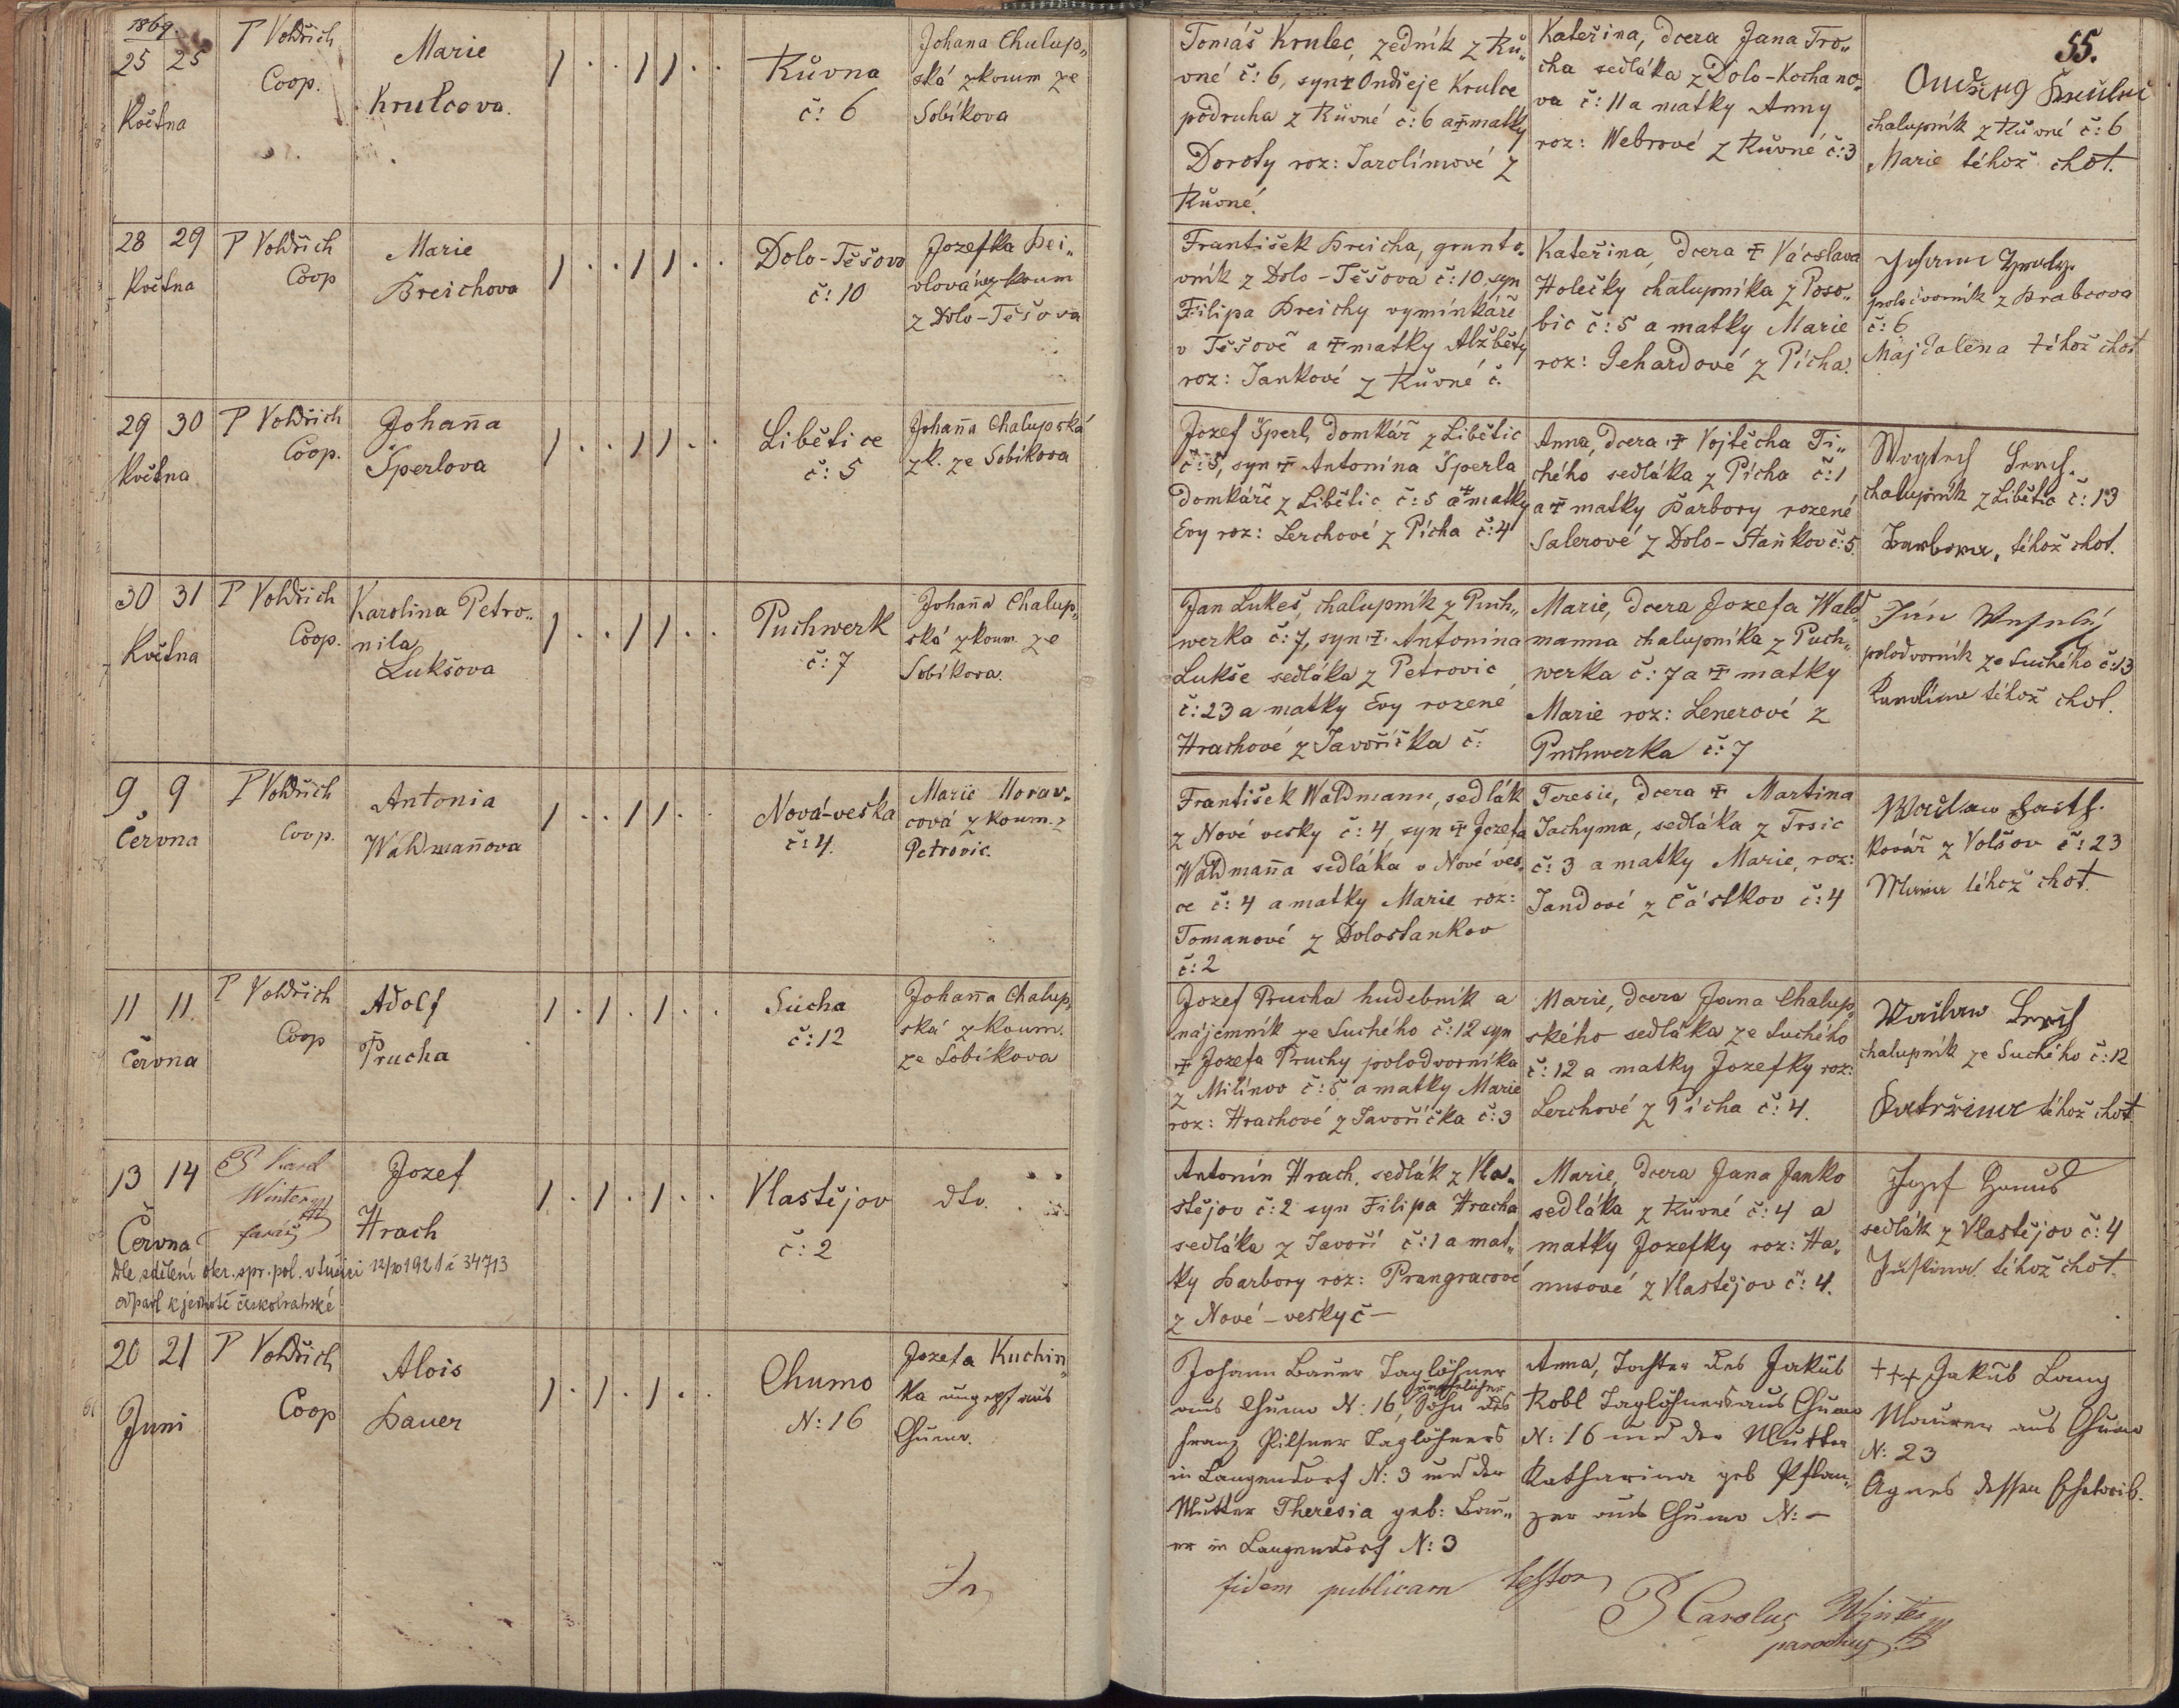 1869.
25 25
Května
P Voldřich
Coop.
Marie
Krulcova.
Kůvna
č: 6
Johana Chulup„
ská zkoum ze
Sobíkova
Tomáš Krulec, zedník z Ků„
vné č: 6, syn ☩ Ondřeje Krulce
podruha z Kůvné č: 6 a ☩ matky
Doroty roz: Jarolímové z
Kůvné.
Kateřina, dcera Jana Tro„
cha sedláka z Dolo-Kochano„
va č: 11 a matky Anny
roz: Webrové z Kůvné č: 3
55.
chalupník z Kůvné č: 6
Marie téhož chot.
28 29
Května
P Voldřich
Coop
Marie
Breichova
Dolo-Těšovo
č: 10
Jozefka Bei„
z Dolo-Těšova
František Breicha, grunto„
vník z Dolo-Těšova č: 10, syn
Filipa Breichy vymínkáře
v Těšově a ☩ matky Alžběty
roz: Jankové z Kůvné č.
Kateřina, dcera ☩ Václava
Holečky chalupníka z Poso„
bic č: 5 a matky Marie
roz: Gehardové z Pícha.
polodvorník z Brabcova
č: 6
Majdalena téhož chot
29 30
Května
P Voldřich
Coop.
Johan̄a
Šperlova
Libětice
č: 5
Johan̄a Chalupská
zk. ze Sobíkova
Jozef Šperl, domkář z Libětic
č: 5, syn ☩ Antonína Šperla
domkáře z Libětic č: 5 a ☩ matky
Evy roz: Lerchové z Pícha č: 4
Anna, dcera ☩ Vojtěcha Ti„
chého sedláka z Pícha č: 1
a ☩ matky Barbory rozené
Salerové z Dolo-Staňkov č: 5.
Wogtech Lerch.
chalupník z Libětic č: 13
Barbora, téhož chot.
30 31
Května
P Voldřich
Coop.
Karolina Petro„
nila
Lukšova
Puchwerk
č: 7
Johan̄a Chalup„
ská zkoum. ze
Sobíkova.
Jan Lukeš, chalupník z Puch„
werka č: 7, syn ☩ Antonína
Lukše sedláka z Petrovic
č: 23 a matky Evy rozené
Hrachové z Javoříčka č:
Marie, dcera Jozefa Wald„
manna chalupníka z Puch„
werka č: 7 a ☩ matky
Marie roz: Lenerové z
Puchwerka č: 7
Ján Wesselý
polodvorník ze Suchého č: 13
Karolína téhož chot.
9 9
Června
P Voldřich
Coop.
Antonia
Waldman̄ova
Nová-veska
č: 4.
Marie Morav„
cová zkoum. z
Petrovic.
František Waldmann, sedlák
z Nové vesky č: 4, syn ☩ Jozefa
Waldman̄a sedláka v Nové ves„
ce č: 4 a matky Marie roz:
Tomanové z Dolostankov
č: 2
Teresie, dcera ☩ Martina
Jachyma, sedláka z Trsic
č: 3 a matky Marie, roz:
Jandové z Částkov č: 4
kovář z Volšov č: 23
Maria téhož chot.
11 11.
Června
P Voldřich
Coop
Adolf
Prucha
Sucha
č: 12
Johan̄a Chalup„
ská zkoum.
ze Sobíkova
Jozef Prucha hudebník a
nájemník ze Suchého č: 12 syn
☩ Jozefa Pruchy polodvorníka
z Milínov č: 5 a matky Marie
roz: Hrachové z Javoříčka č: 3
Marie, dcera Jana Chalup„
ského sedláka ze Suchého
č: 12 a matky Jozefky roz:
Lerchové z Pícha č: 4.
Waclaw Lerch
chalupník ze Suchého č: 12
Katržina téhož chot
13 14
Června
P Karel
Winter
farář
Jozef
Hrach
Dle sdělení okr. spr. pol. v Sušici 12/10 1921 č 34713
odpadl k jednotě českobratrské
Vlastějov
č: 2
dto.
Antonín Hrach, sedlák z Vla„
stějov č: 2 syn Filipa Hracha
sedláka z Javoří č: 1 a mat„
ky Barbory roz: Prangracové
z Nové-vesky č —
Marie, dcera Jana Janko
sedláka z Kůvné č: 4 a
matky Jozefky roz: Ha„
nusové z Vlastějov č: 4.
Jozef Hanus
sedlák z Vlastějov č: 4
Justina téhož chot.
20 21
Juni
P Voldřich
Coop
Alois
Bauer
Chumo
N: 16
Jozefa Kuchin„
ka ungepf aus
Chumo.
Johann Bauer Taglöhner
aus Chumo N: 16, unehelicher Sohn des
Franz Pilsner Taglöhners
in Langendorf N: 3 und der
Mutter Theresia geb: Bau„
er in Langendorf N: 3
Anna, Tochter des Jakub
Kobl Taglöhners aus Chumo
N: 16 und der Mutter
Katharina geb Pflan„
zer aus Chumo N: —
+++ Jakub Lang
Maurer aus Chumo
N: 23
Agnes dessen Eheweib.
In fidem publicam testor
P Carolus Winter
parochus